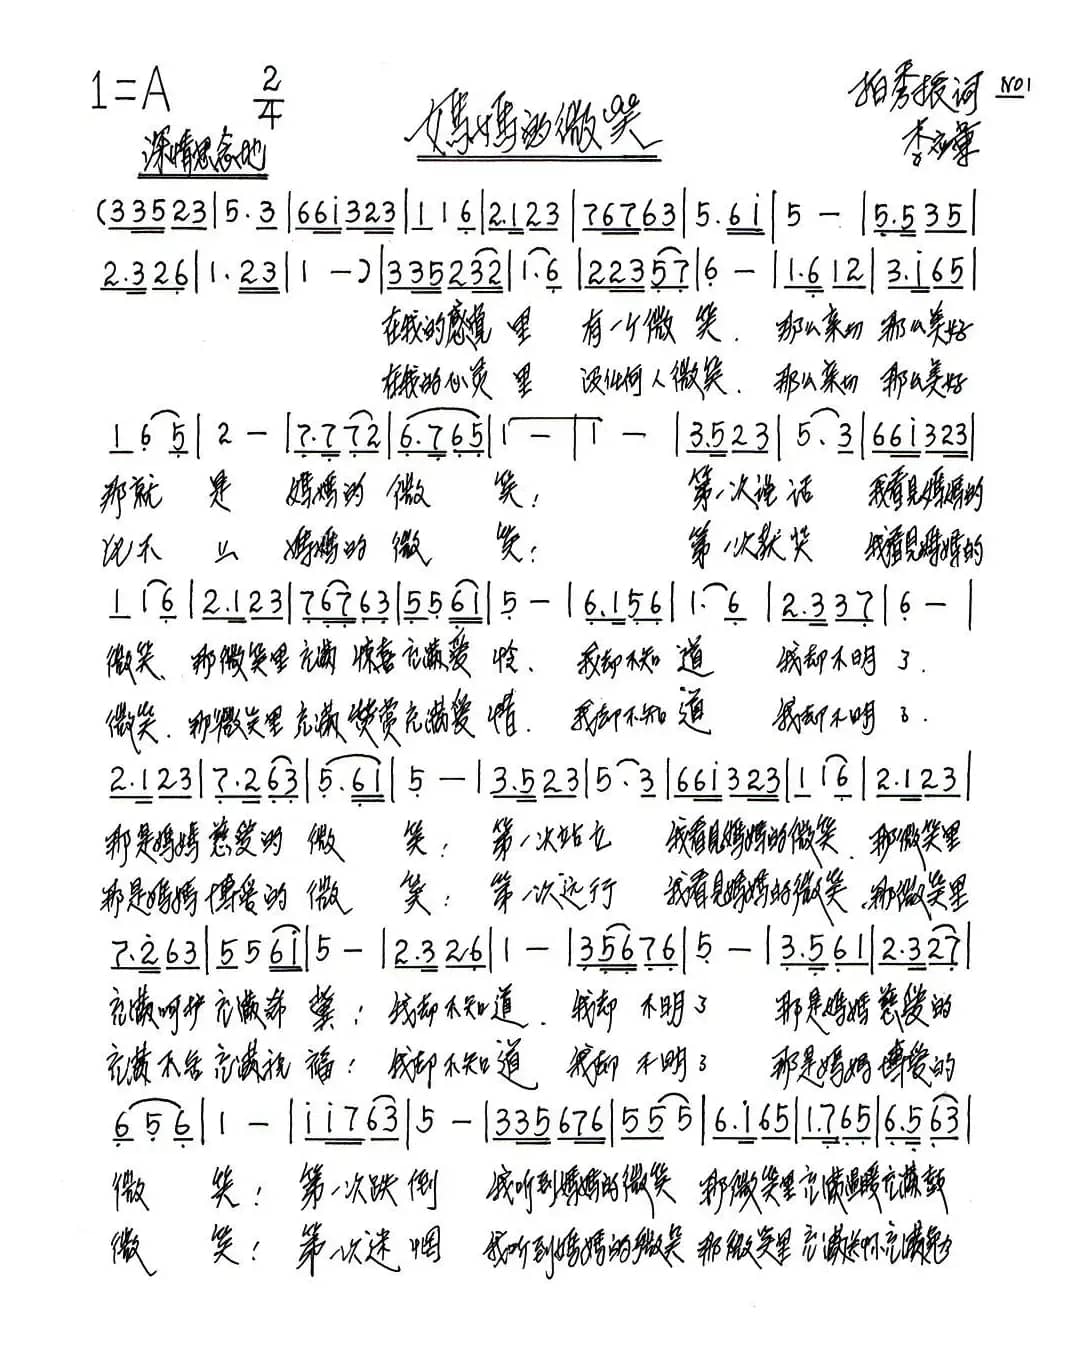 1=A 2/4 媽媽的微笑 柏秀授词 NO1
深情思念地 李
(33523|5.3|66i323|116|2.123|76763|5.6i|5－|5.535|
2.326|1.23|1－)|335232|1.6|22357|6－|1.612|3.i65|
在我的感觉里 有一个微笑. 那么亲切 那么美好
在我的心灵里 没任何人微笑. 那么亲切 那么美好
165|2－|7.772|6.765|1－|1－|3.523|5.3|66i323|
那就是媽媽的微笑; 第一次说话 我看見媽媽的
比不上媽媽的微笑; 第一次获奖 我看見媽媽的
116|2.123|76763|556i|5－|6.156|1.6|2.337|6－|
微笑、那微笑里充满惊喜充满爱怜、我却不知道 我却不明了.
微笑、那微笑里充满赞赏充满爱惜. 我却不知道 我却不明了.
2.123|7.263|5.6i|5－|3.523|5.3|66i323|116|2.123|
那是媽媽慈爱的微笑; 第一次站立 我看見媽媽的微笑、那微笑里
那是媽媽博爱的微笑; 第一次远行 我看見媽媽的微笑、那微笑里
7.263|556i|5－|2.326|1－|35676|5－|3.561|2.327|
充满呵护充满希冀; 我却不知道、我却不明了 那是媽媽慈爱的
充满不舍充满祝福; 我却不知道 我却不明了 那是媽媽博爱的
656|1－|ii763|5－|335676|555|6.i65|1.765|6.563|
微笑; 第一次跌倒 我听到媽媽的微笑 那微笑里充满温暖充满鼓
微笑; 第一次迷惘 我听到媽媽的微笑 那微笑里充满关怀充满